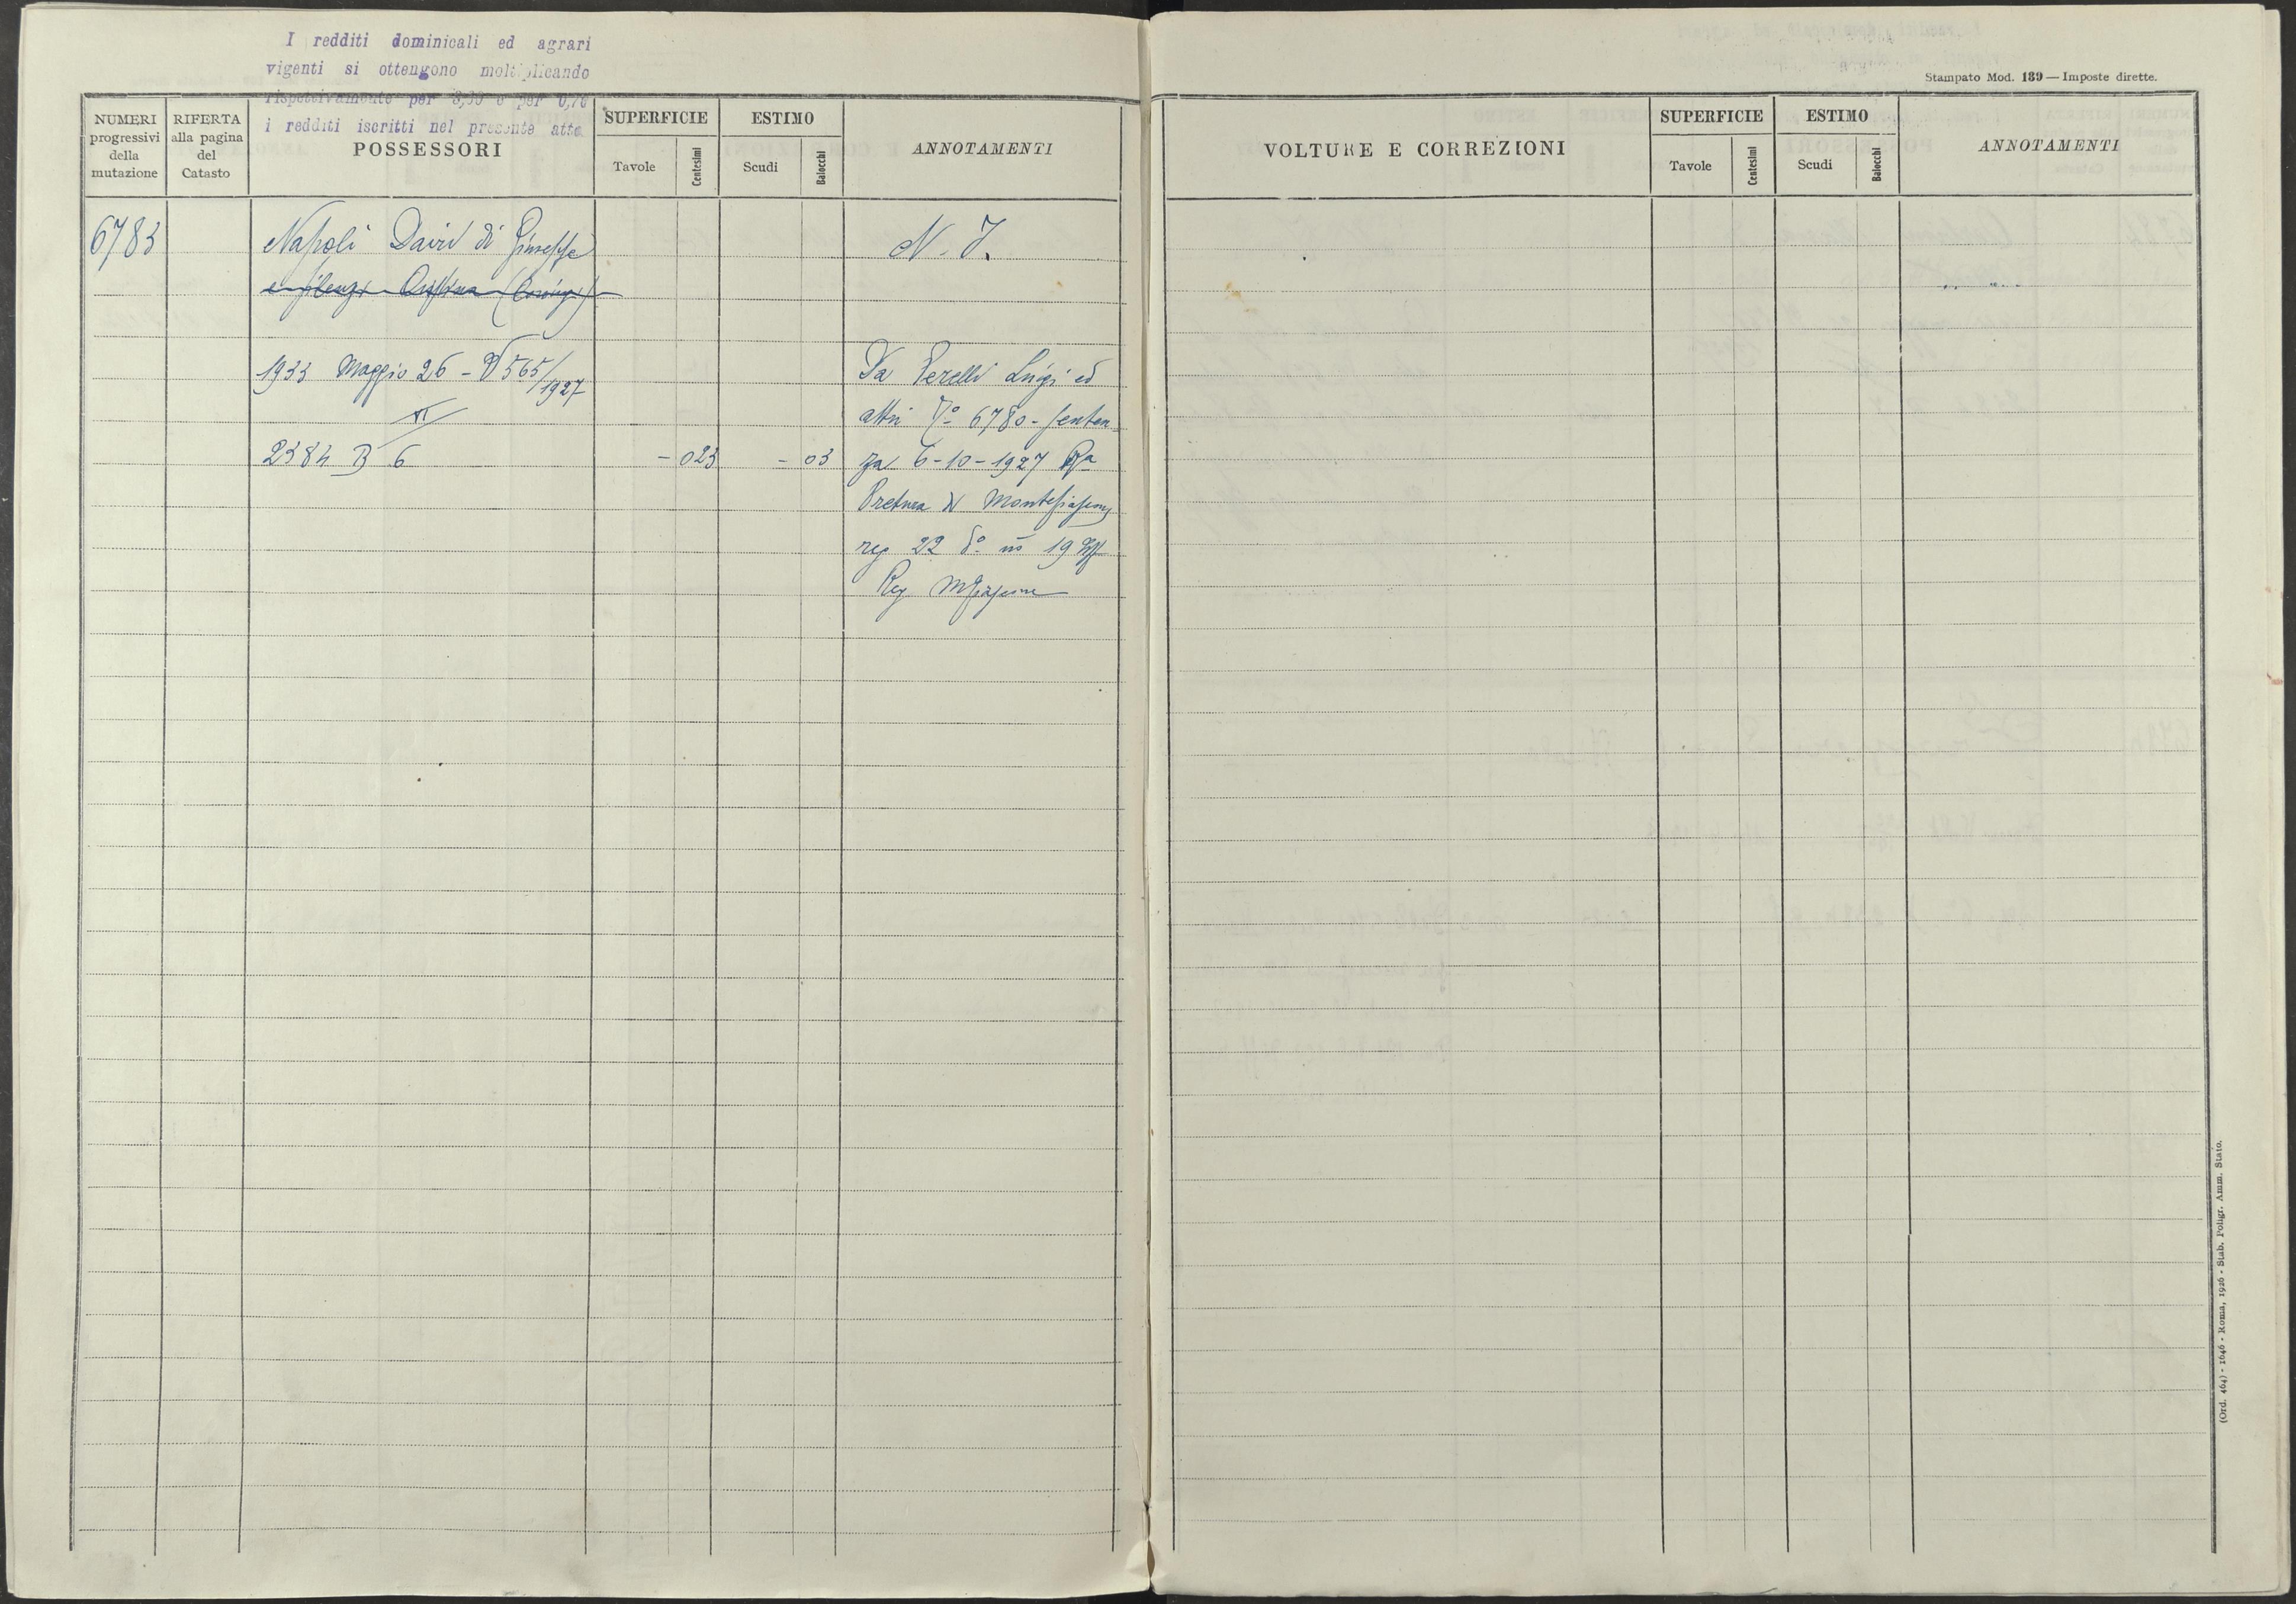 I redditi dominicali ed agrari
vigenti si ottengono moltiplicando
rispettivamente per e per 0,70
i redditi iscritti nel presente atto
NUMERI progressivi della mutazione
RIFERTA alla pagina del Catasto
POSSESSORI
SUPERFICIE
Tavole
Centesimi
ESTIMO
Scudi
Baiocchi
ANNOTAMENTI
6783
Napoli David di Giuseppe
N. I.
1933 Maggio 26 - 565/1927
XI
2384 B 6
- 023
- 03
Da Perelli Luigi ed
altri 6780 - senten=
za 6-10-1927 Ra
Pretura di Montefiascone
reg 22 do no 19
Reg Mfiascone
Stampato Mod. 139 — Imposte dirette.
VOLTURE E CORREZIONI
SUPERFICIE
Tavole
Centesimi
ESTIMO
Scudi
Baiocchi
ANNOTAMENTI
(Ord. 464) - 1646 - Roma, 1926 - Stab. Poligr. Amm. Stato.